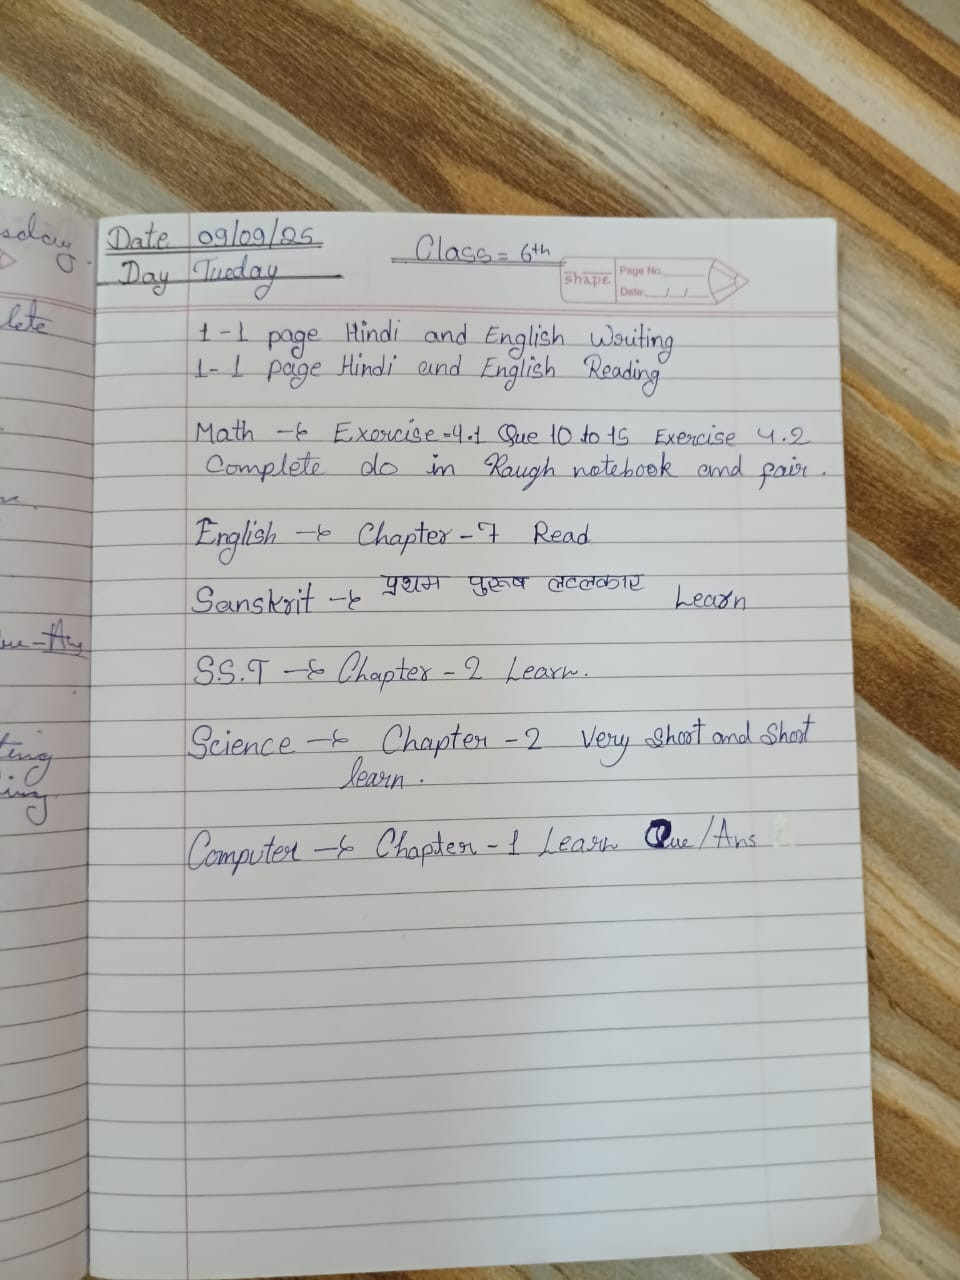 sday
lete
Que-Ans
ting
Date 09/09/25
Day Tueday
Class = 6th
shape
Page No.
Date: / /
1-1 page Hindi and English Writing
1-1 page Hindi and English Reading
Math → Exercise-4.1 Que 10 to 15 Exercise 4.2
Complete do in Rough notebook and fair.
English → Chapter-7 Read
Sanskrit → प्रथम पुरूष लटलकार Learn
S.S.T → Chapter-2 Learn.
Science → Chapter-2 Very Short and Short
learn.
Computer → Chapter-1 Learn Que/Ans